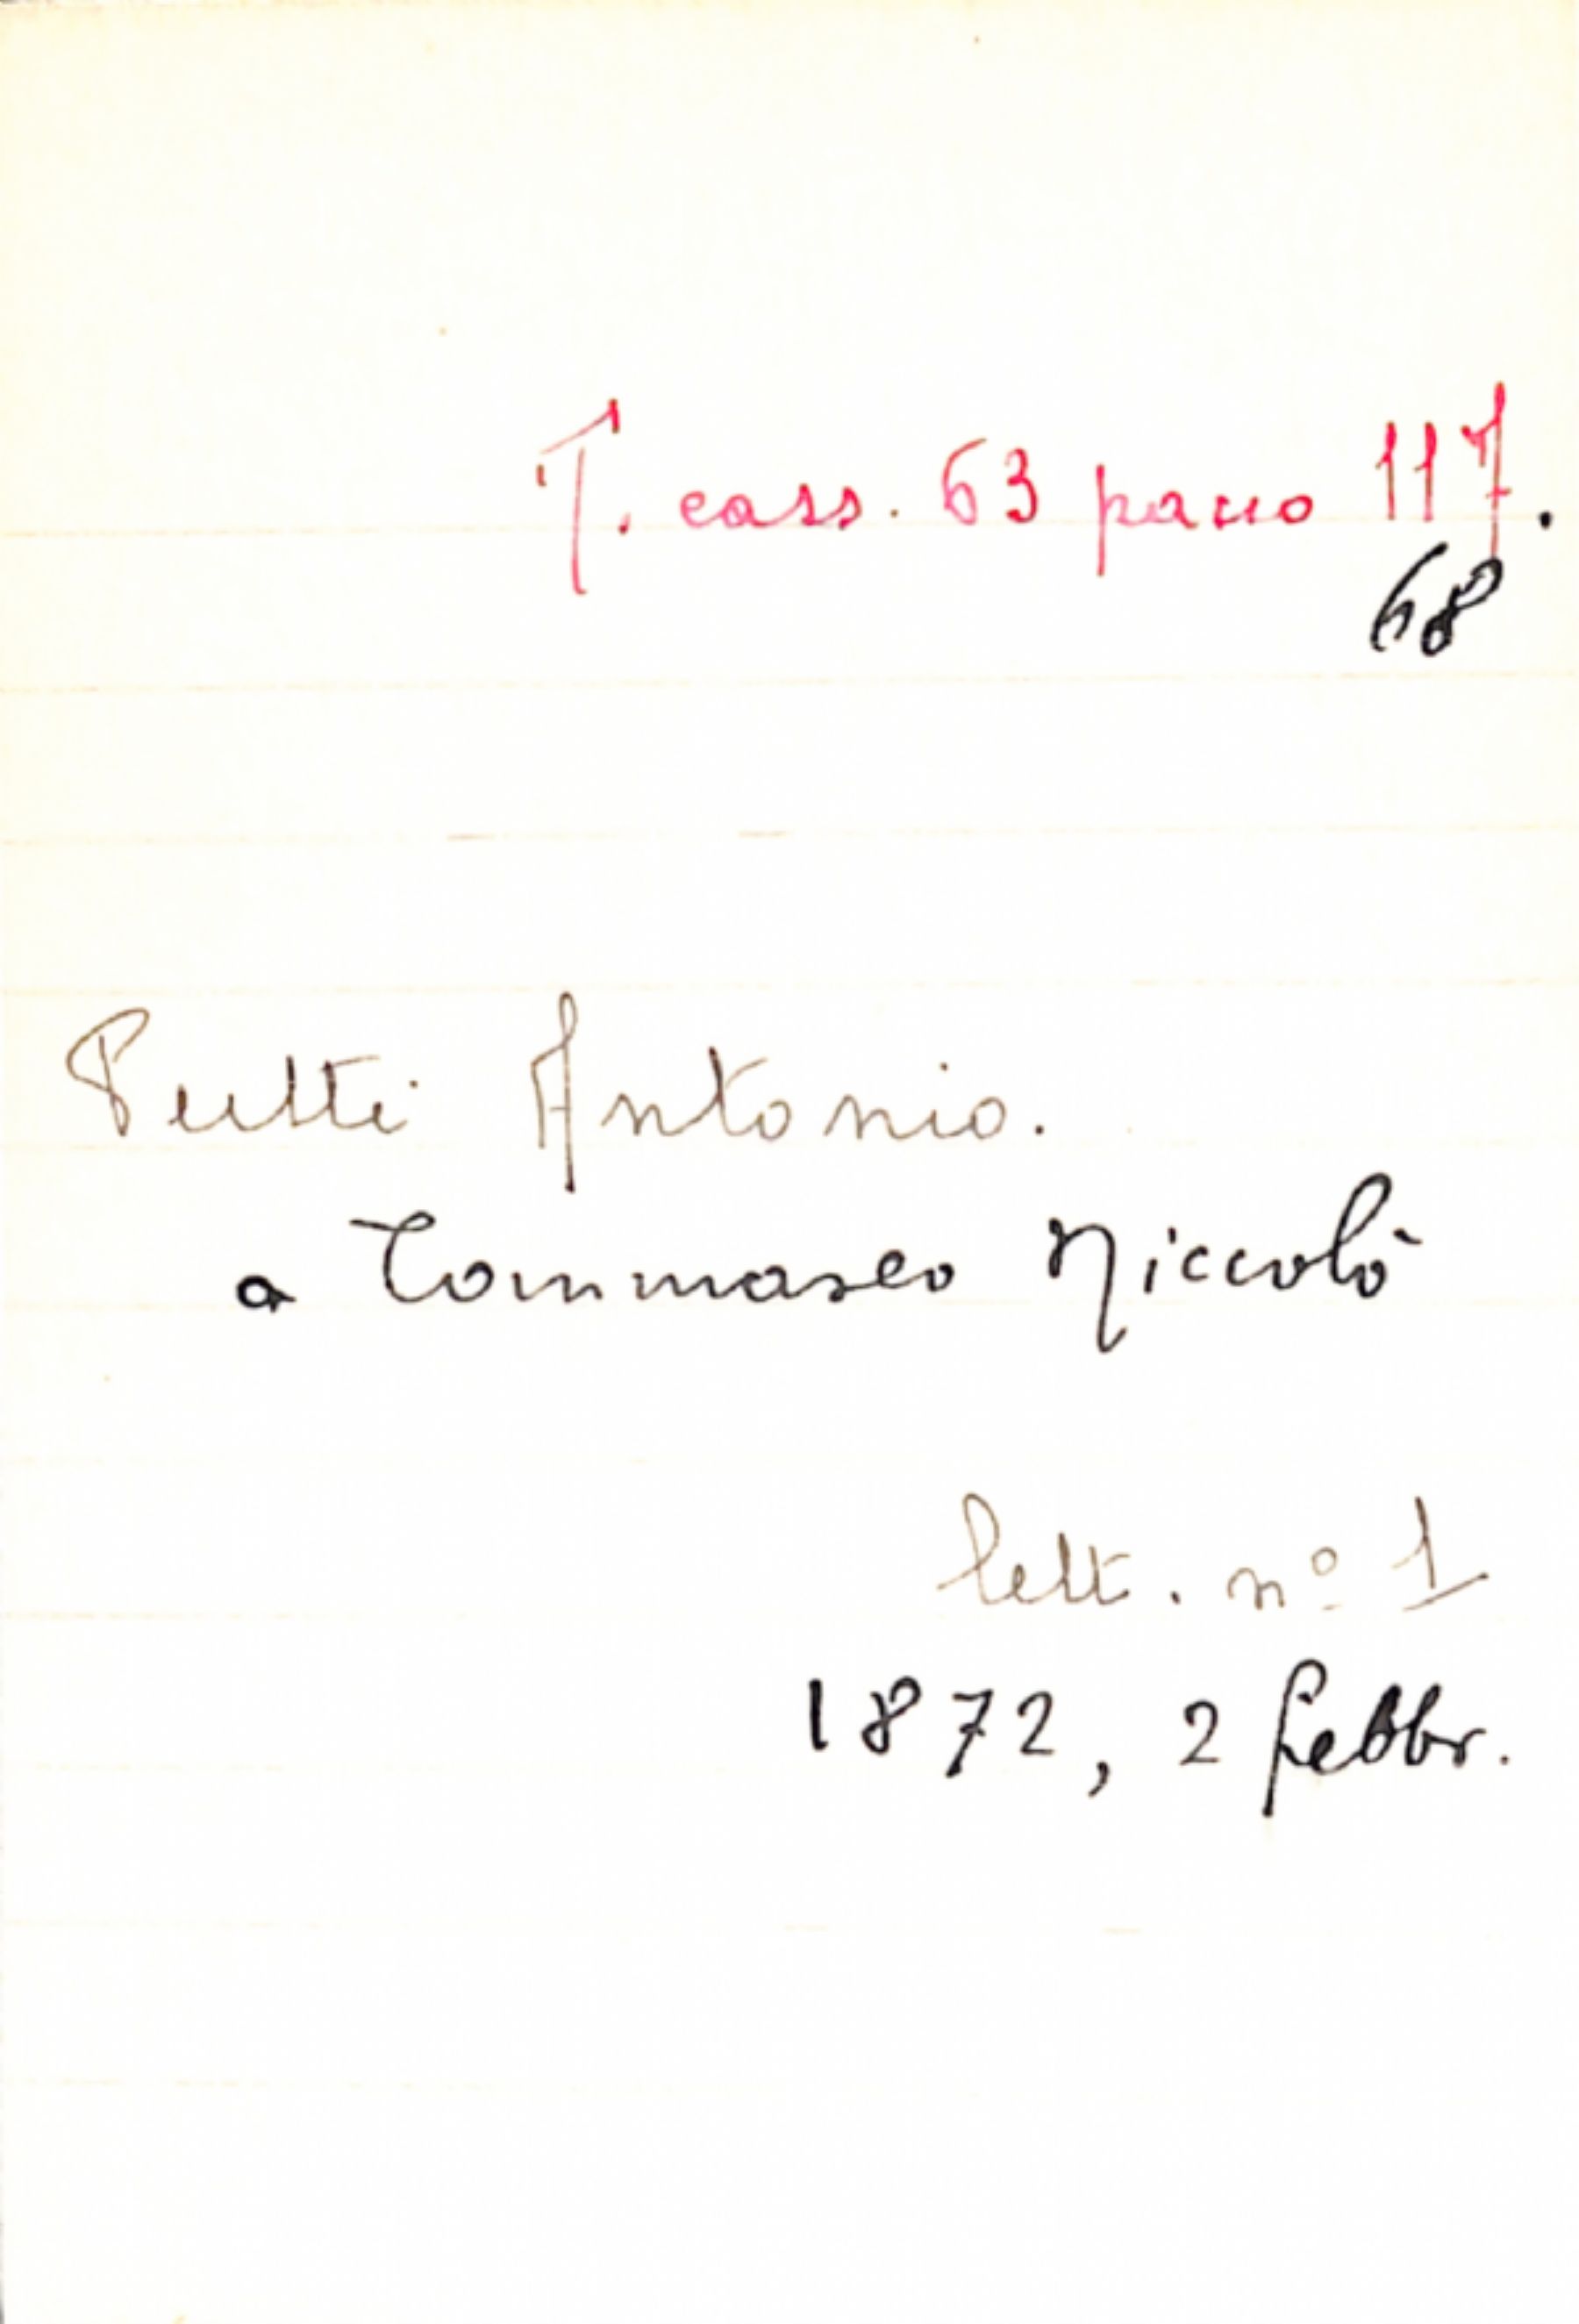 T. cass. 63 pacco 117.
68
Putti Antonio.
a Tommaseo Niccolò
lett. nº 1
1872, 2 febbr.